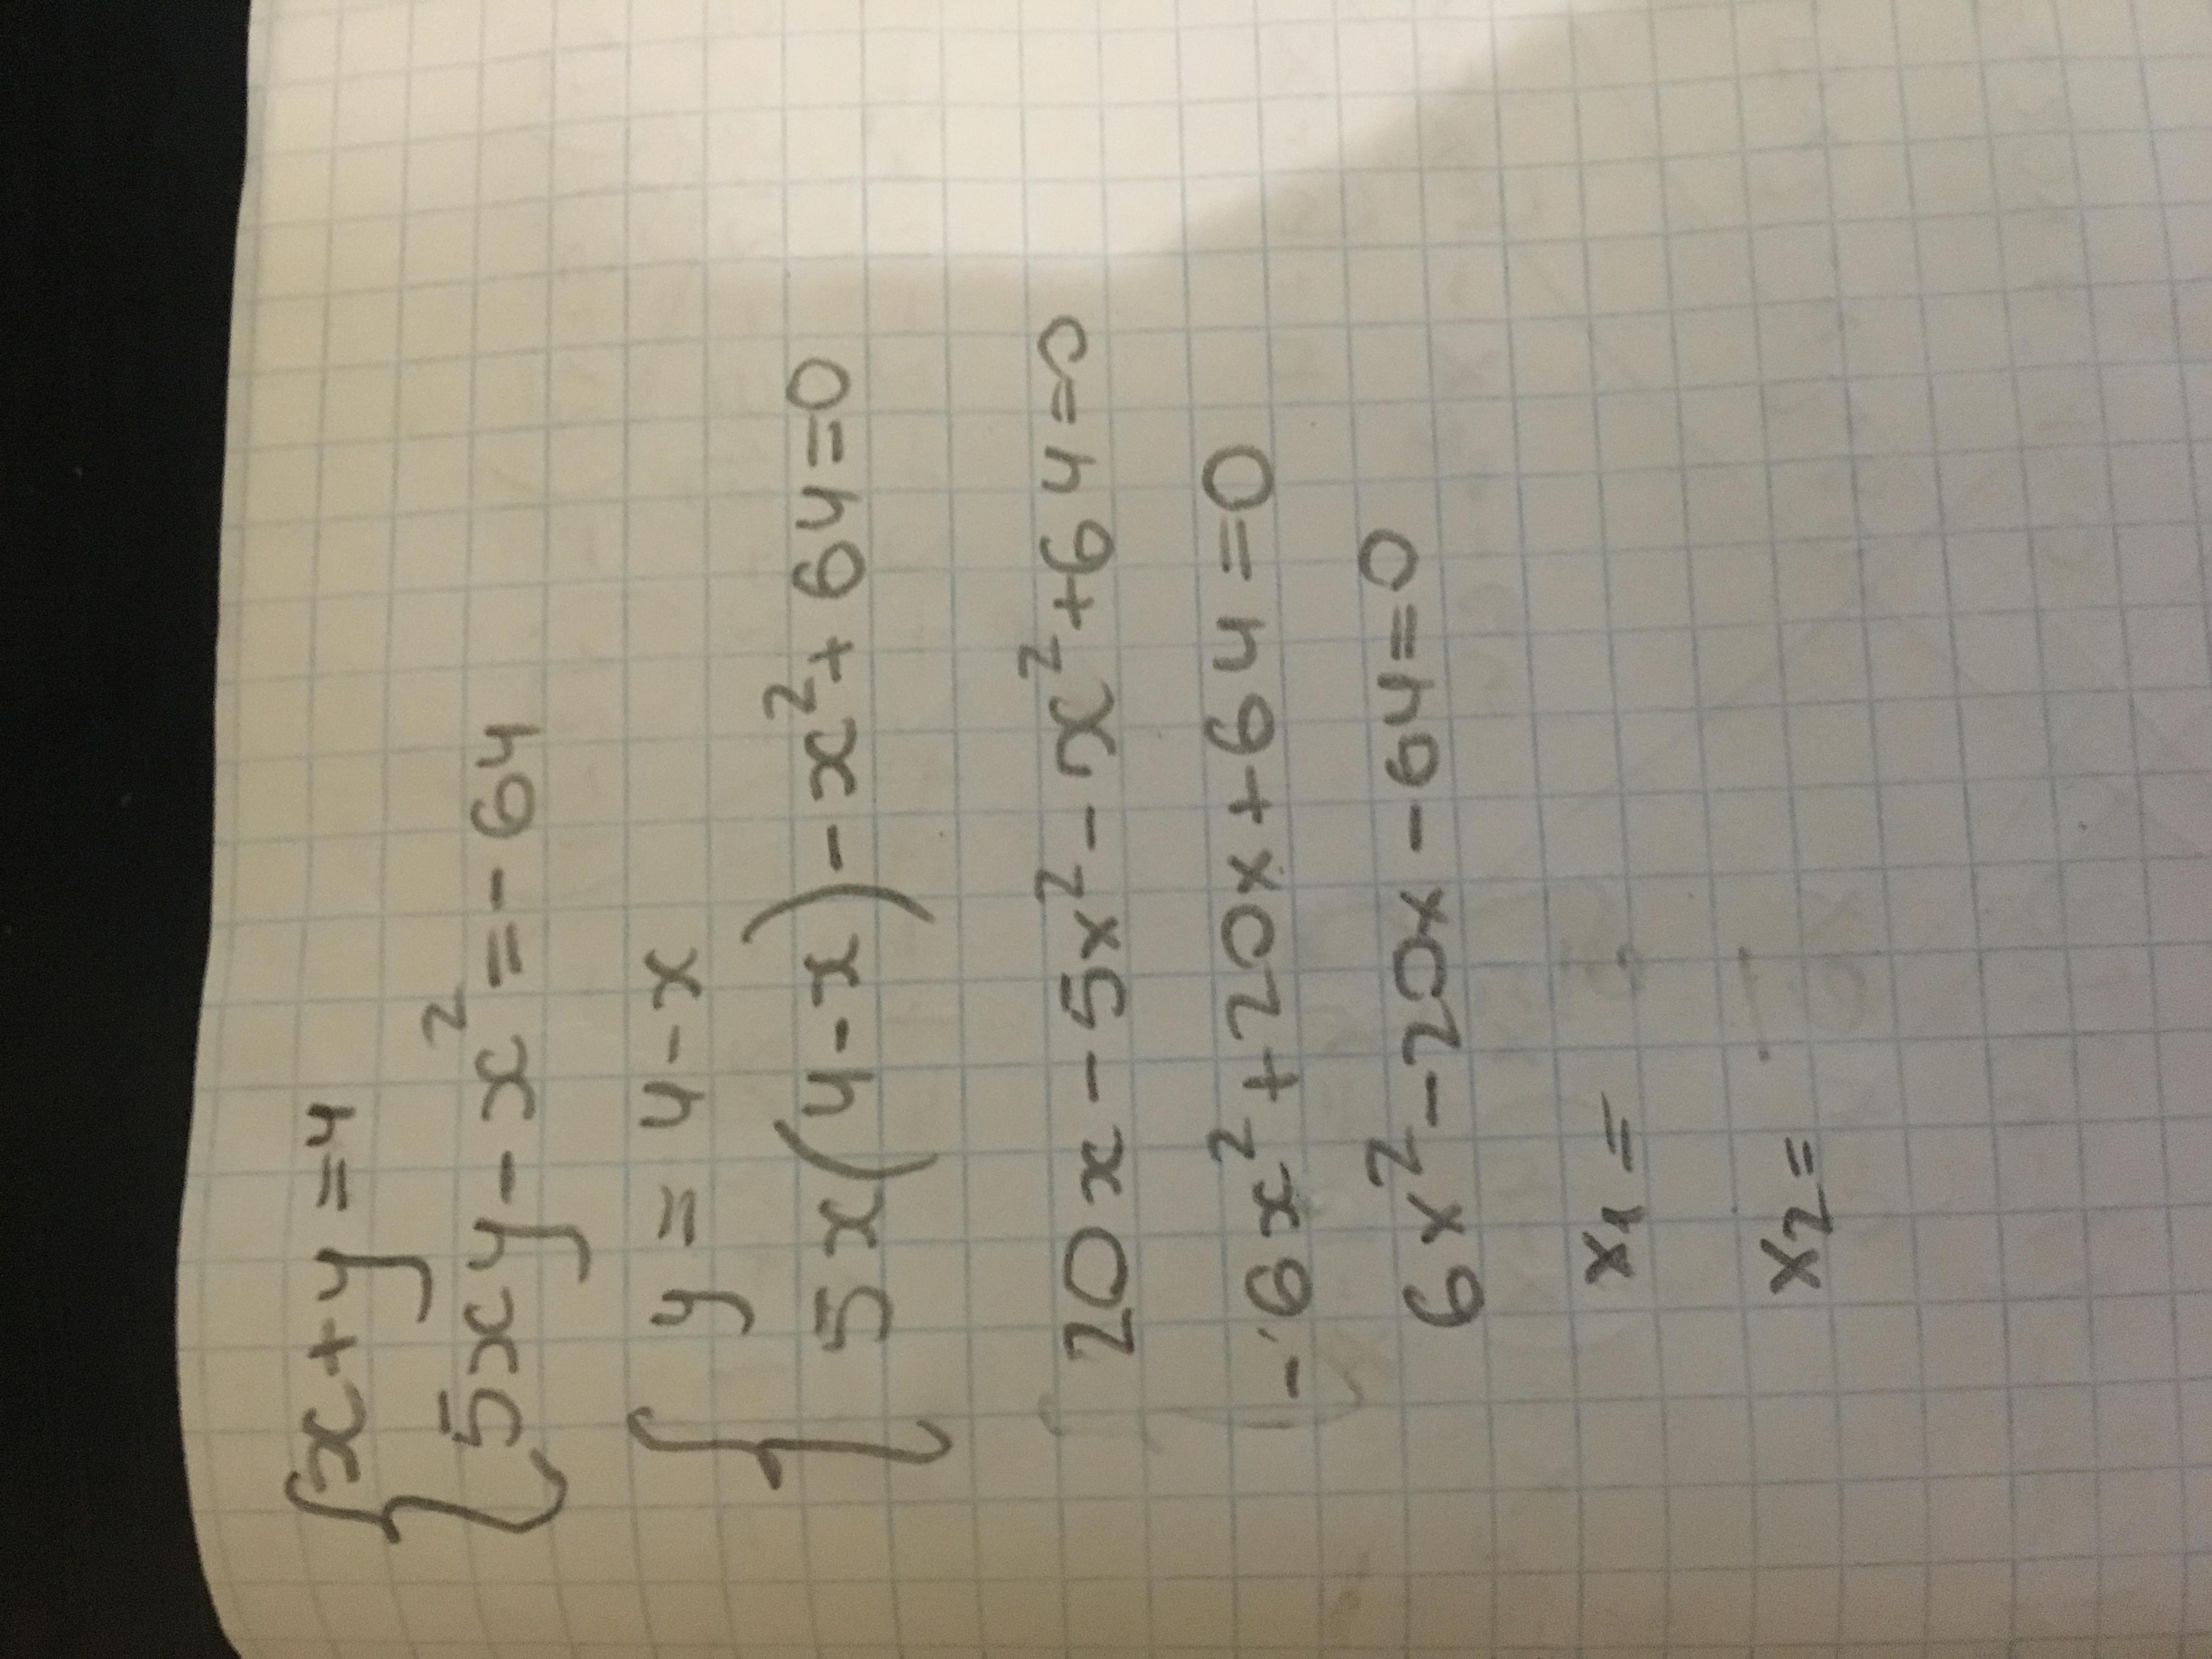 x+y=4
5xy-x²=-64
y=4-x
5x(4-x)-x²+64=0
20x-5x²-x²+64=0
-6x²+20x+64=0
6x²-20x-64=0
x₁=
x₂=